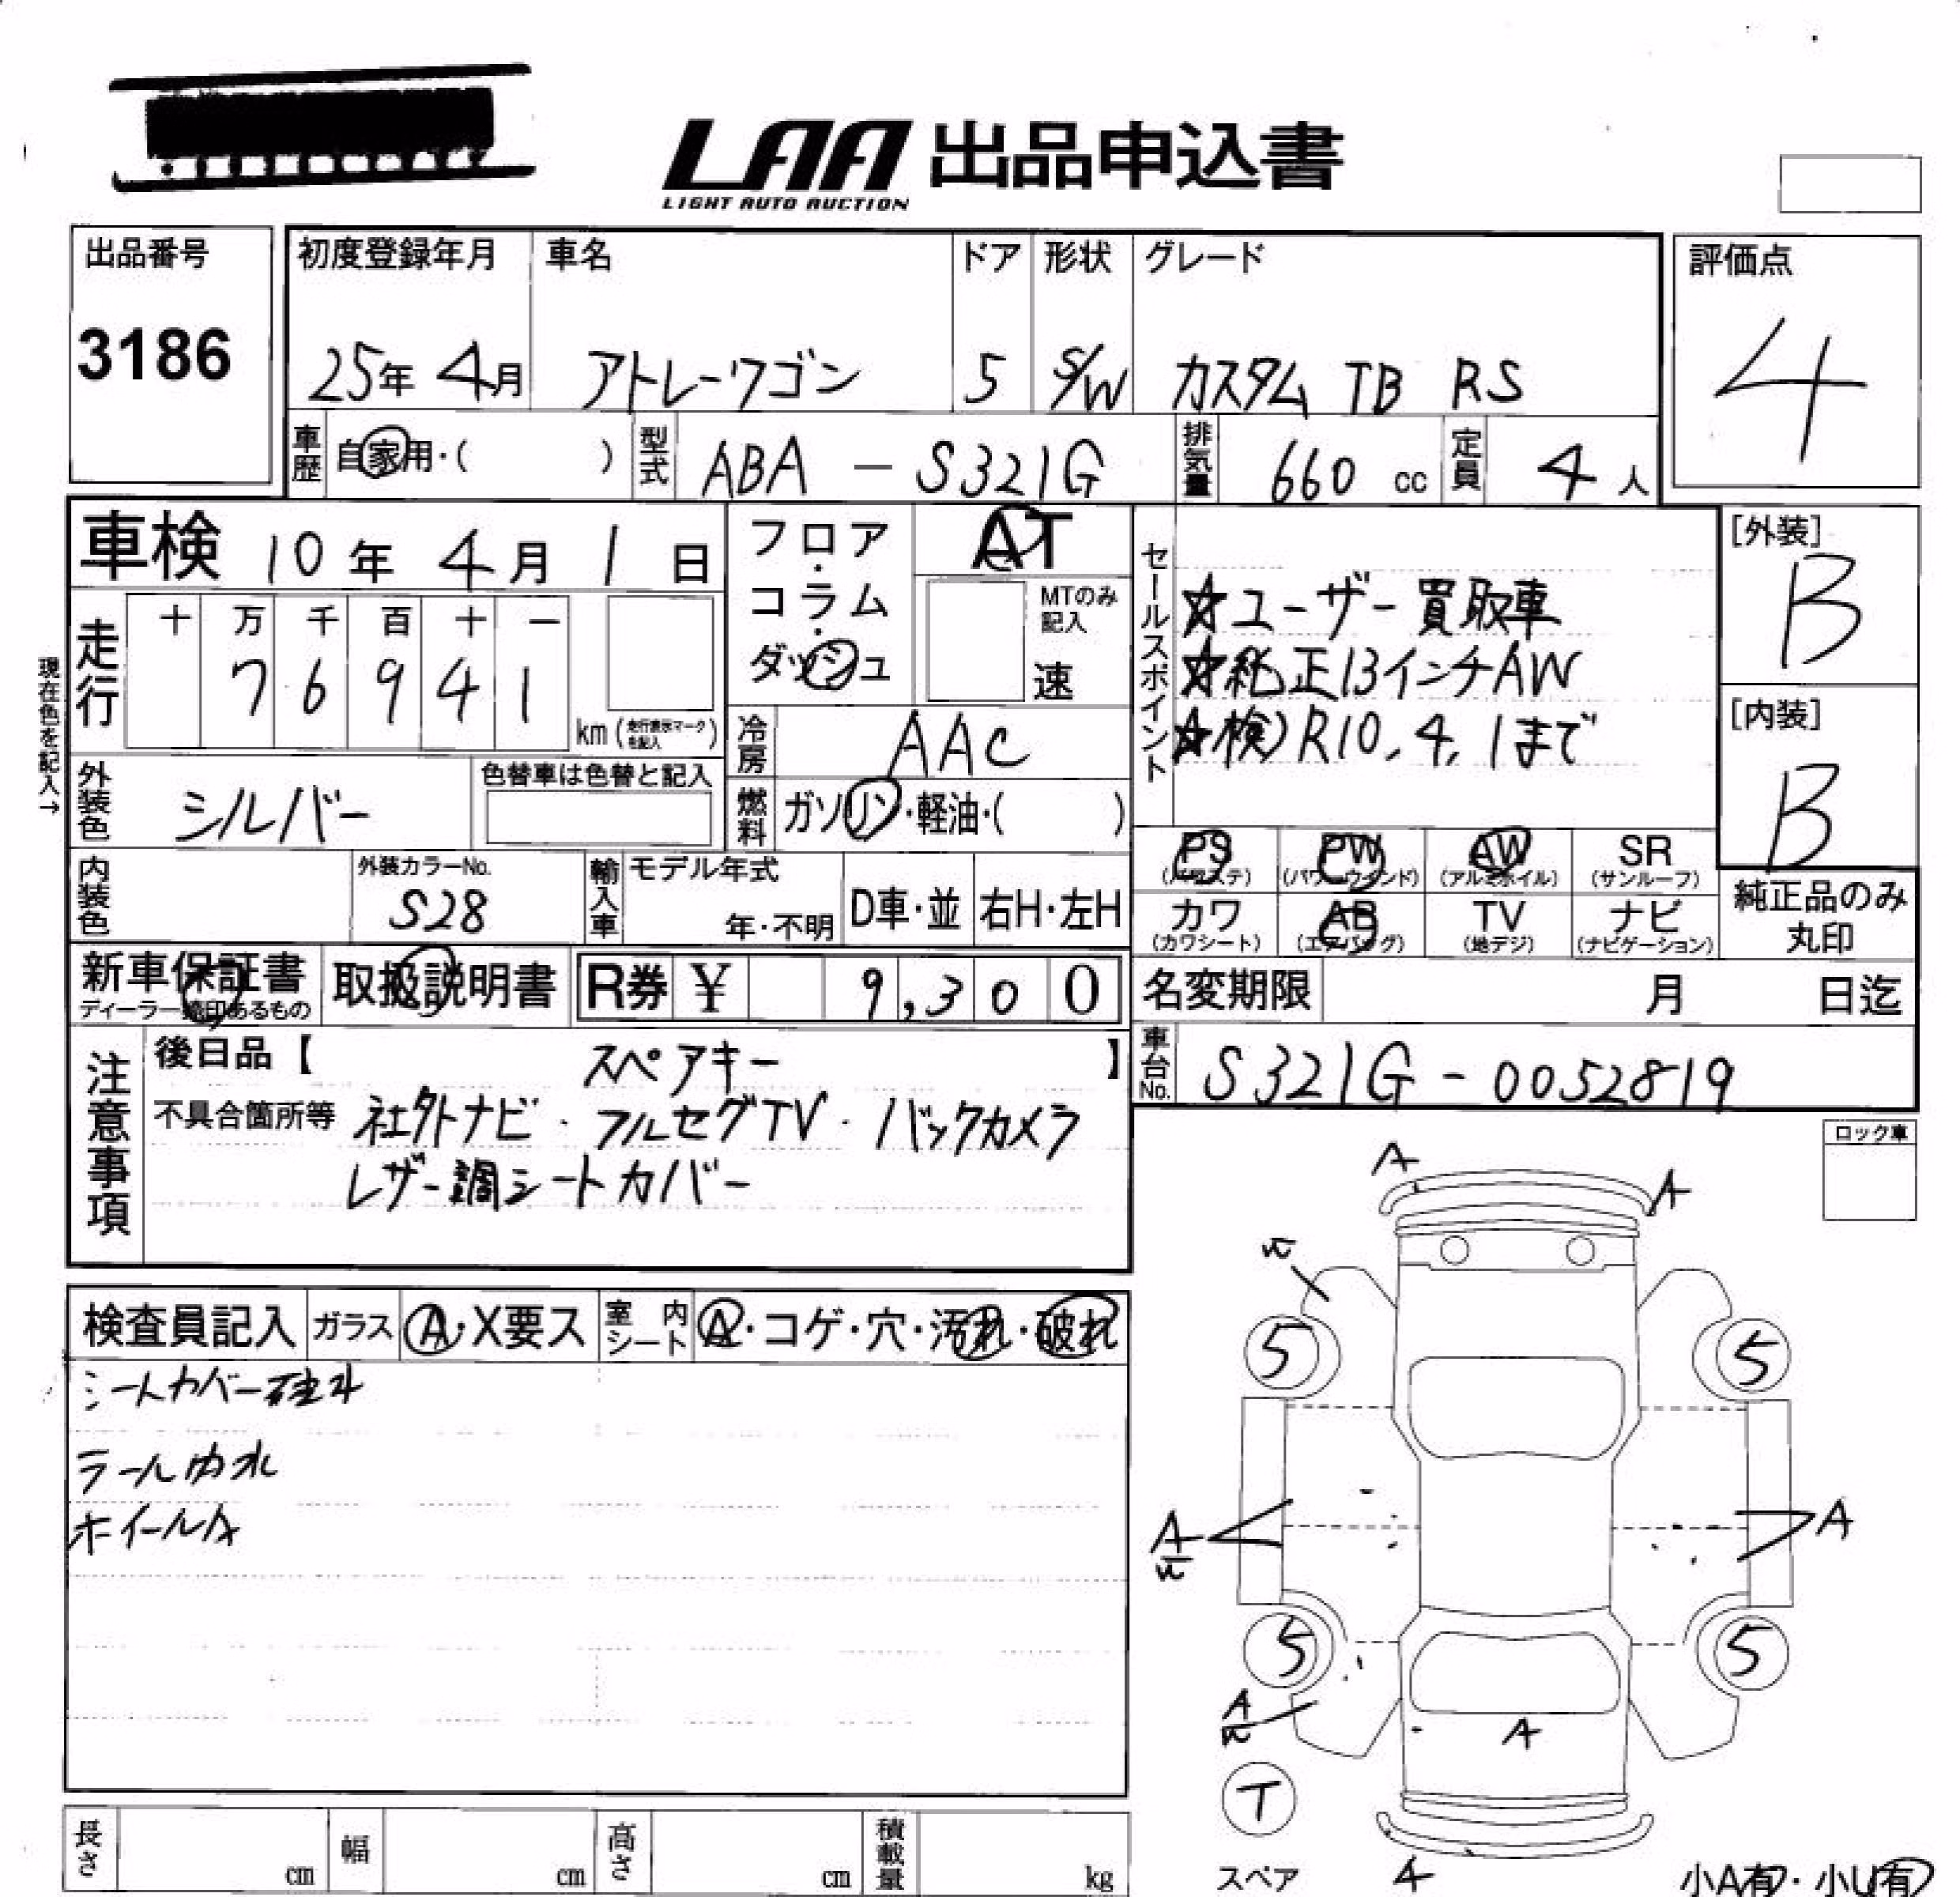 LAA 出品申込書
LIGHT AUTO AUCTION
出品番号
3186
初度登録年月 車名 ドア 形状 グレード
25年 4月 アトレーワゴン 5 S/W カスタム TB RS
評価点
4
車歴 自家用・( ) 型式 ABA - S321G 排気量 660 cc 定員 4人
車検 10年 4月 1日
フロア・コラム・ダッシュ
AT
MTのみ記入
速
セールスポイント
☆ユーザー買取車
☆純正13インチAW
☆検)R10.4.1まで
[外装]
B
[内装]
B
現在色を記入→
走行 十 万 千 百 十 一
7 6 9 4 1
km (走行表示マークを記入)
冷房 AAC
外装色 シルバー
色替車は色替と記入
燃料 ガソリン・軽油・( )
内装色
外装カラーNo.
S28
輸入車 モデル年式
年・不明 D車・並 右H・左H
PS PW AW SR
(パワステ) (パワーウインド) (アルミホイル) (サンルーフ)
カワ AB TV ナビ
(カワシート) (エアバッグ) (地デジ) (ナビゲーション)
純正品のみ
丸印
新車保証書 取扱説明書 R券 ¥ 9,300
ディーラー 印あるもの
名変期限 月 日迄
車台No. S321G - 0052819
注意事項
後日品【 スペアキー 】
不具合箇所等 社外ナビ・フルセグTV・バックカメラ
レザー調シートカバー
ロック車
検査員記入 ガラス A・X要ス 室内シート A・コゲ・穴・汚れ・破れ
シートカバー
ホイールA
A
A
5
5
A
A
5
5
A
A
T
スペア
A
小A有・小U有
長さ cm 幅 cm 高さ cm 積載量 kg